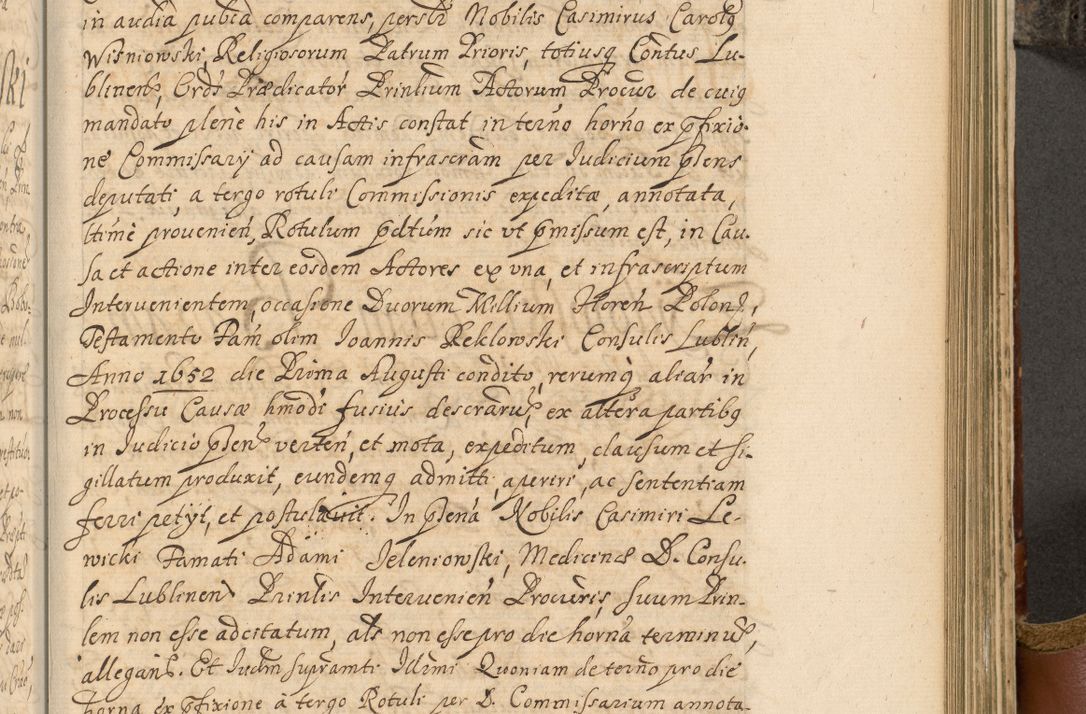 in audia pubca comparens, perstr Nobilis Casimirus Carolq
Wisniowski, Religiosorum Patrum Prioris, totiusq Contus Lu-
blinens, Ordi Prædicator Prinlium Actorum Procur de cuiq
mandato plene his in Actis constat in terno horno ex pfixio-
ne Commissarij ad causam infrascram per Iudicium pens
deputati, a tergo rotuli Commissionis expeditæ, annotata,
ltime provenien, Rotulum pdtum sic vt pmissum est, in Cau-
sa et actione inter eosdem Actores ex vna, et infrascriptum
Intervenientem, occasione Duorum Millium floren Polon,
Testamento Fam olim Ioannis Reklowski Consulis Lublin,
Anno 1652 die Prima Augusti condito, rerumq aliar in
Processu Causæ hmodi fusius descrarū, ex altera partibq
in Iudicio pen verten, et mota, expeditum, clausum et si-
gillatum produxit, eundemq admitti, aperiri, ac sententiam
ferri petyt, et postulavit. In pena Nobilis Casimiri Le-
wicki Famati Adami Jeleniowski, Medicinæ D. Consu-
lis Lublinen Prinlis Intervenien Procuris, suum Prin-
lem non esse adcitatum, als non esse pro die horna terminū,
allegans. Et Iudm supramti Illrmi Quoniam de terno pro die
horna ex pfixione à tergo Rotuli per D. Commissarium annota-